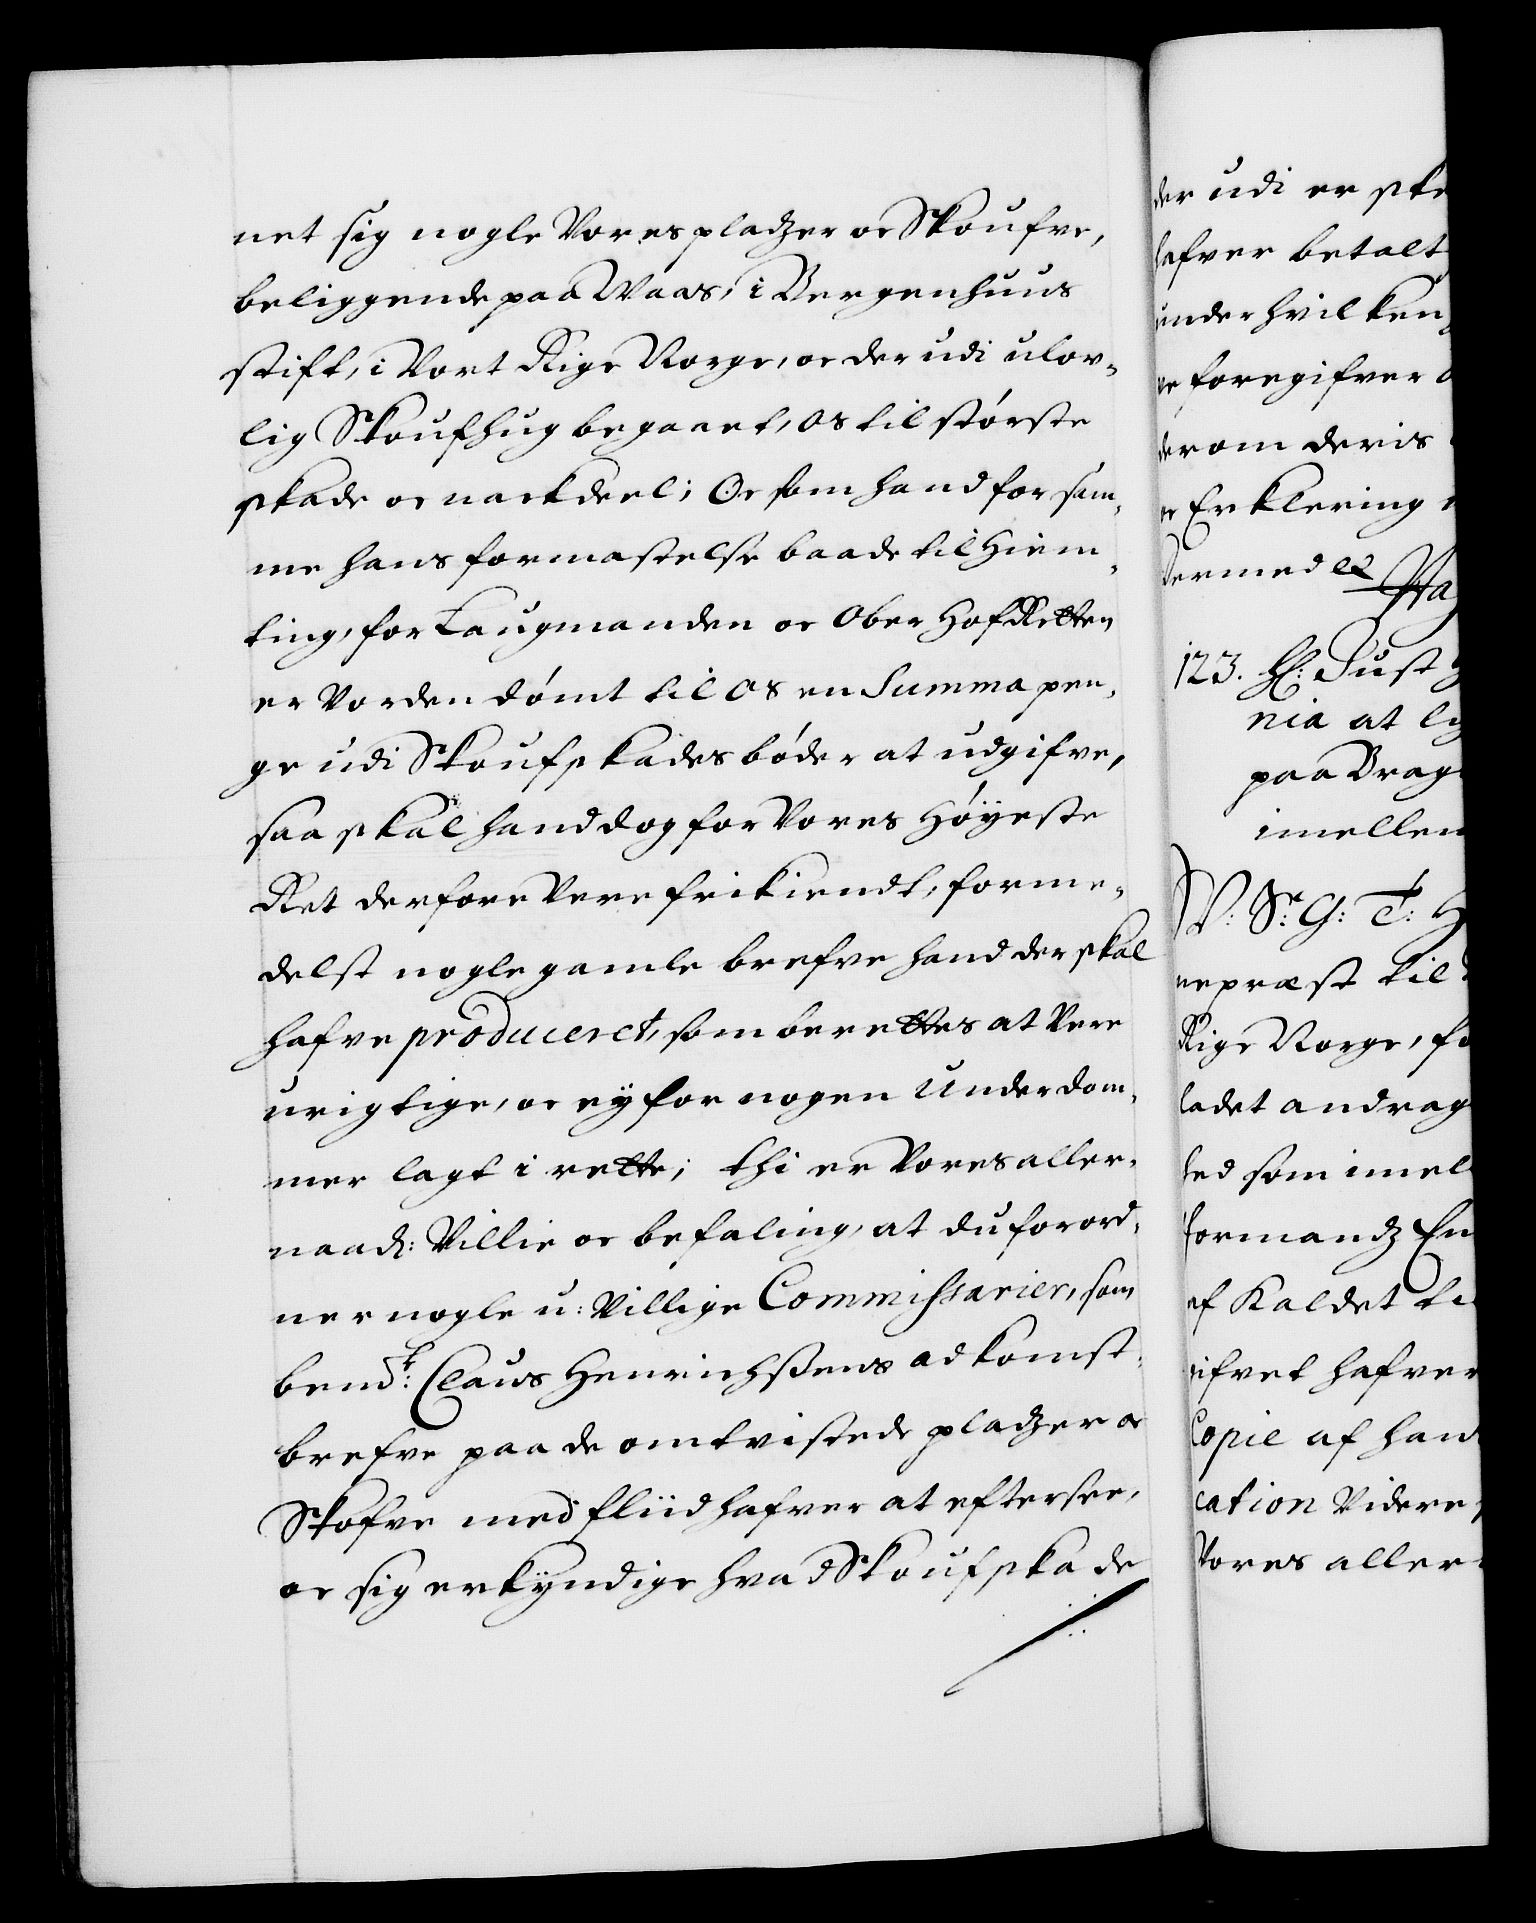 net sig nogle Vores pladzer oc Skoufve,
beliggende paa Waas, i Bergenhuus
stift, i Vort Rige Norge, oc der udi ulov-
lig Skoufhug begaaet, os til störste
skade oc nackdeel; Oc som hand for sam-
me hans formastelse baade til Hiem-
ting, for Laugmanden oc Ober HofRetten
er Vorden dömt til os en Summa pen-
ge udi Skoufskades böder at udgifve,
saa skal hand dog for Vores Höyeste
Ret derfore Vere frikiendt, forme-
delst nogle gamle brefve hand der skal
hafve produceret, som berettes at Vere
urigtige, oc ey for nogen Underdom-
mer lagt i rette; thi er Vores aller-
naad: Villie oc befaling, at du forord-
ner nogle u: Villige Commissarier, som
bemdt: Claus Henrichssens adkomst-
brefve paa de omtvistede pladzer oc
Skofve med fliid hafver at eftersee,
oc sig erkyndige hvad Skoufskade
der udi er ske
hafver betalt
under hvilken
oc foregifver
derom deris
oc Erklering
Dermed &
123. H: Just
nia at
paa Brag
imellem
V: Sr: G: T: H
nepræst til
Rige Norge, fo
ladet andrag
hed som imel
formandz En
af Kaldet
ifvet hafver
Copie af hand
cation Videre
Vores aller-